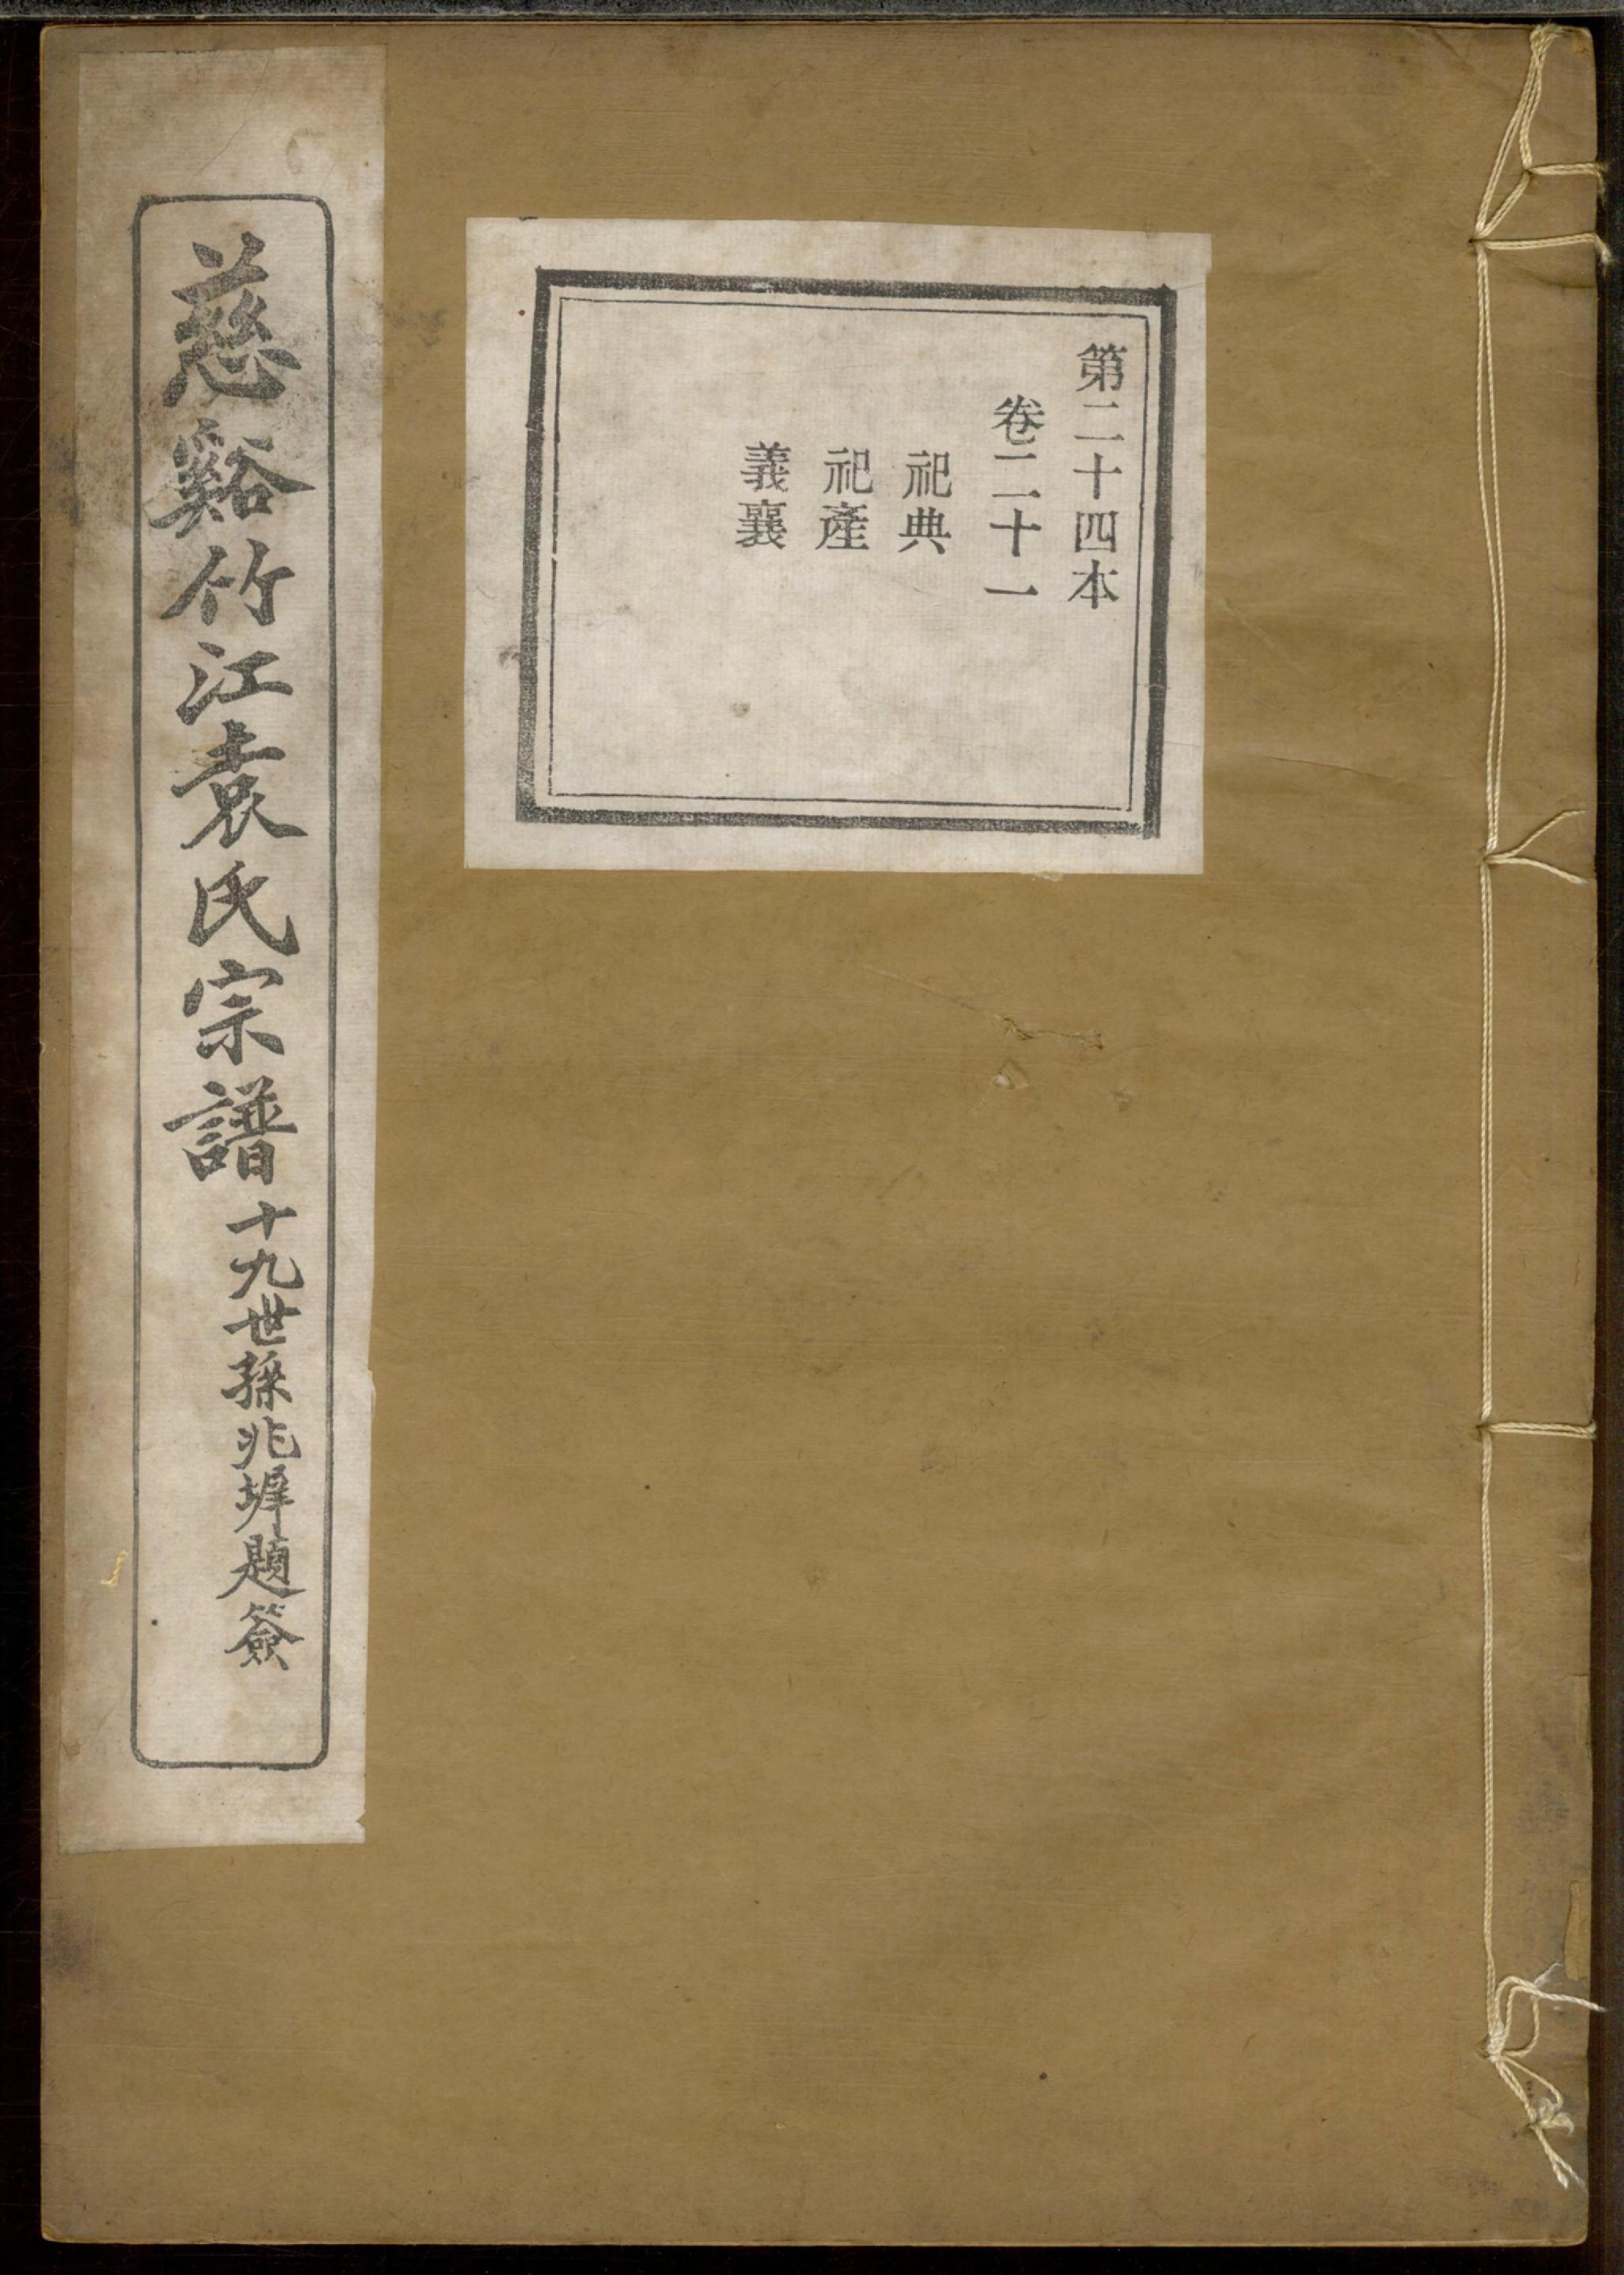 第二十四本
卷二十一
祀典
祀產
義襄
慈谿竹江袁氏宗譜
十九世孫兆墀題簽